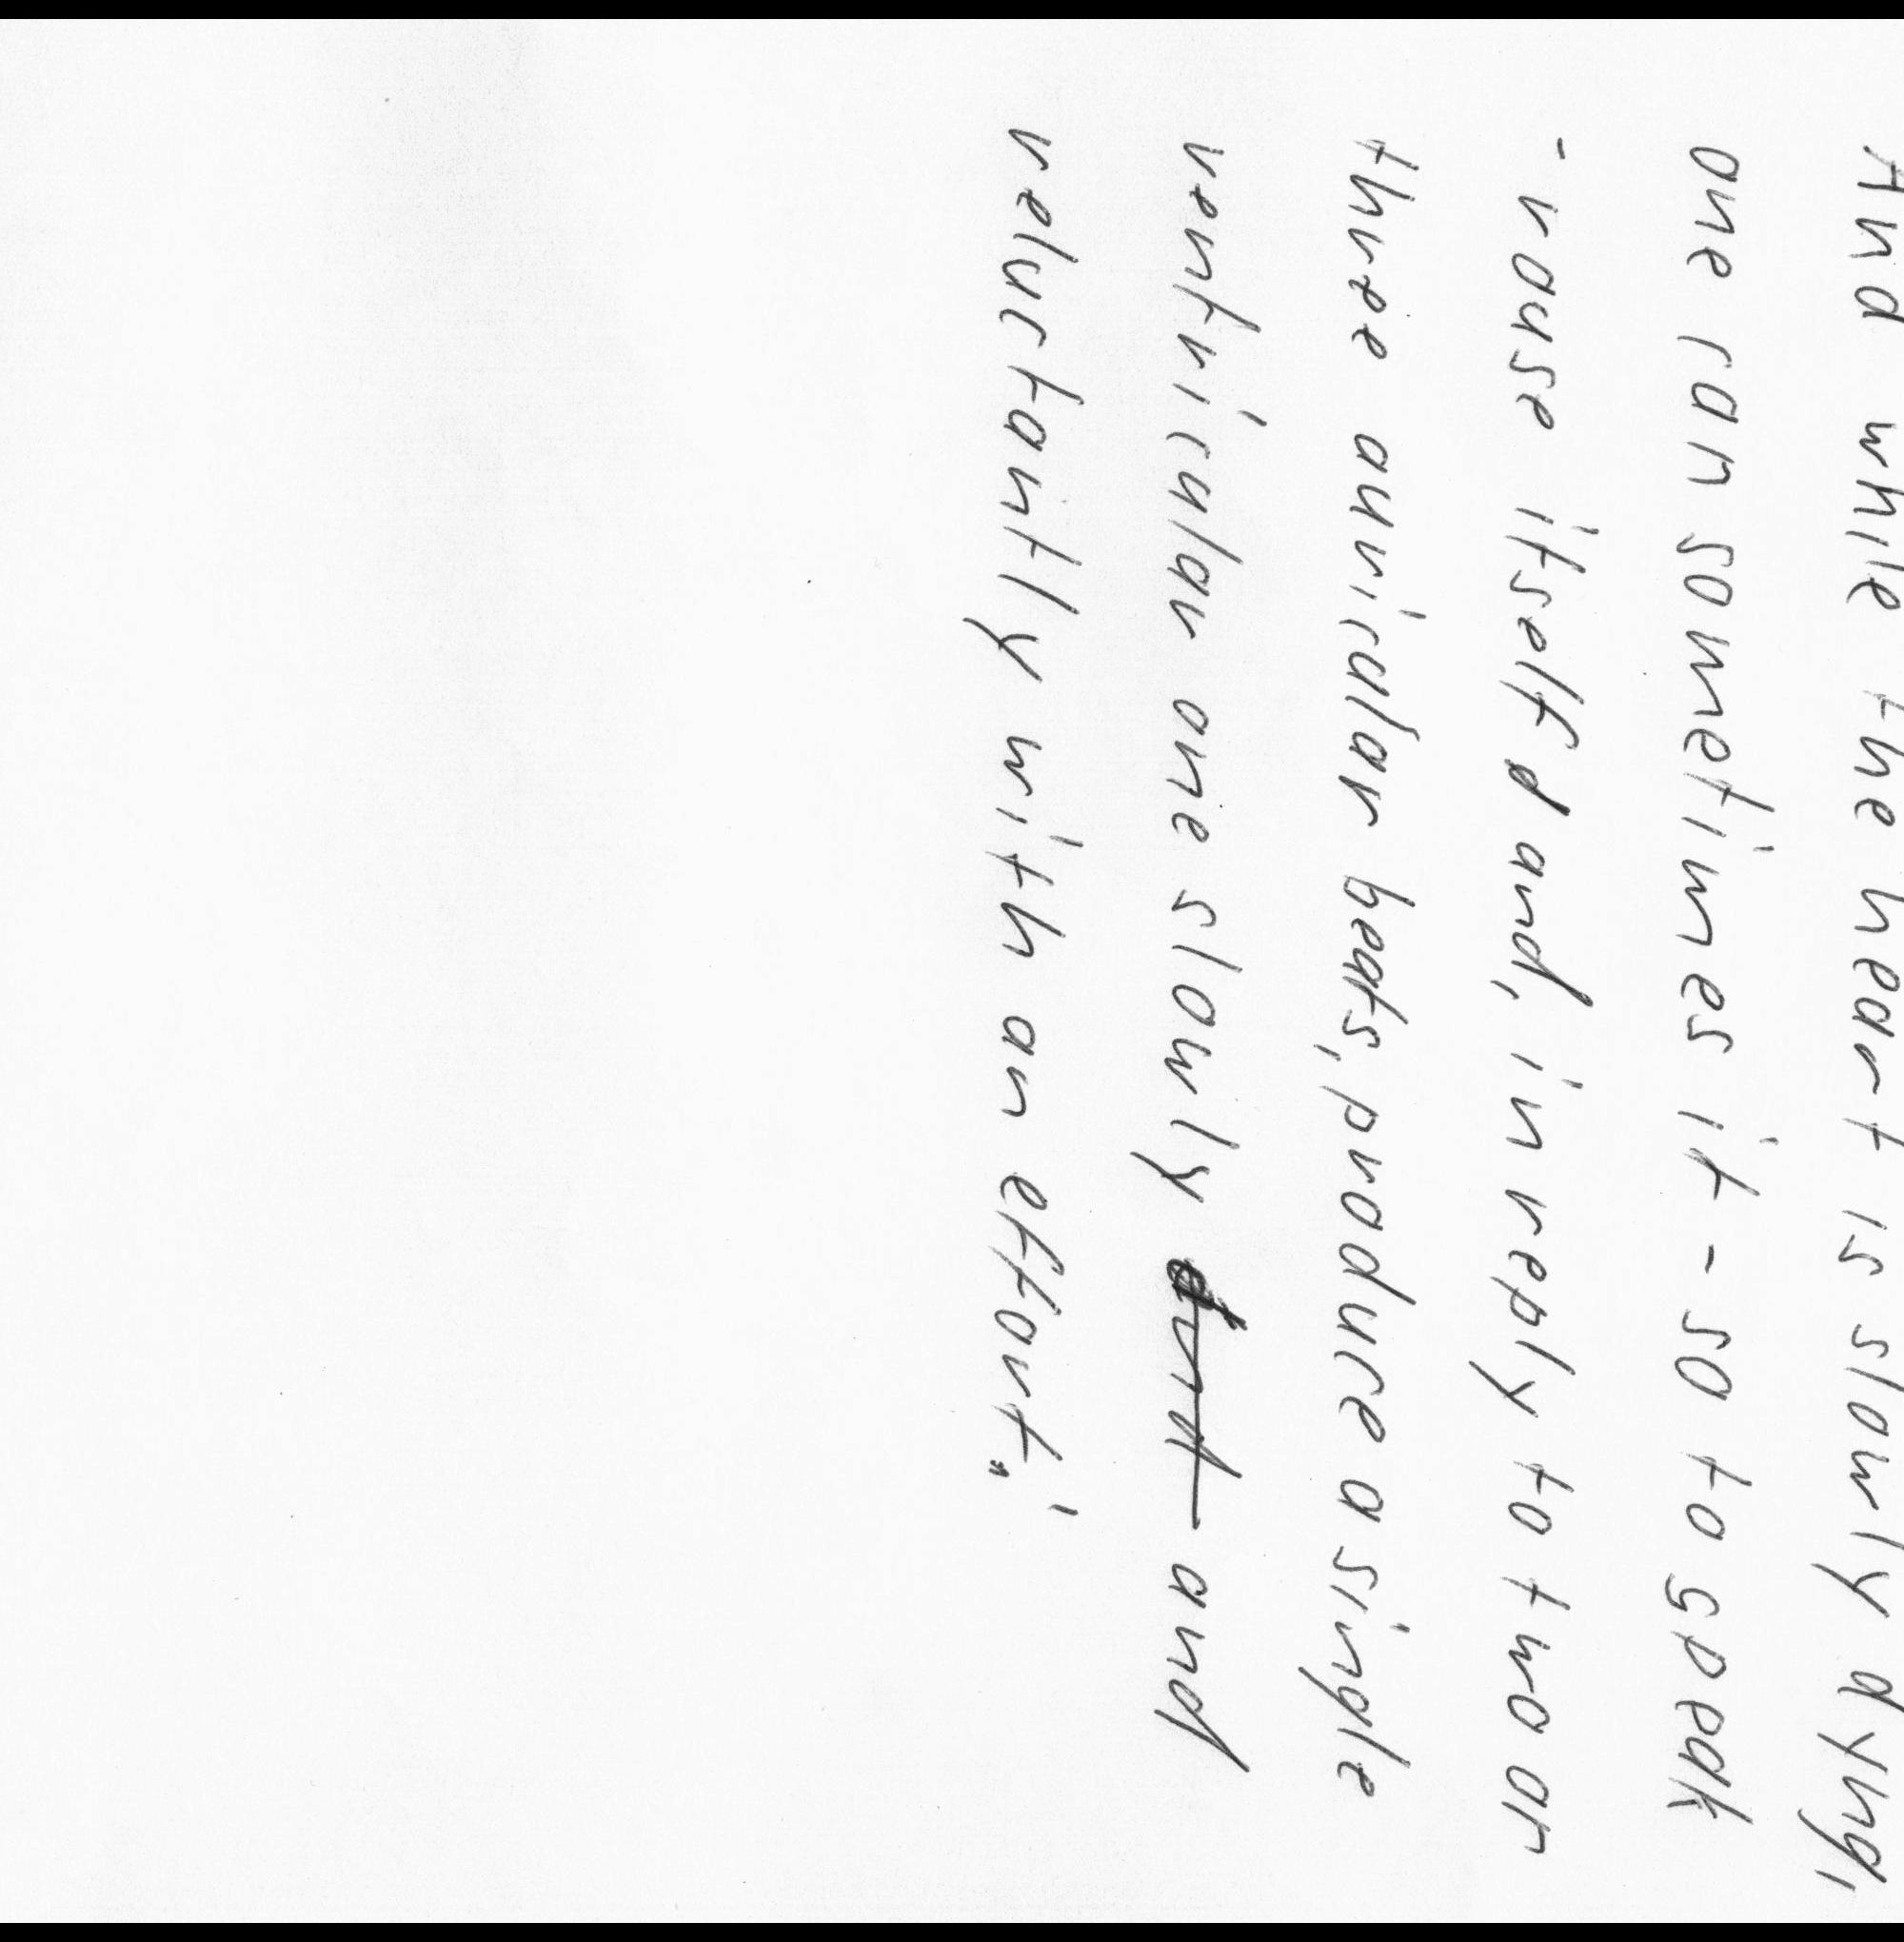 And while the heart is slowly dying,
one can sometimes it - so to speak
- rouse itself and, in reply to two or
three auricular beats, produce a single
ventricular one slowly and
reluctantly with an effort."